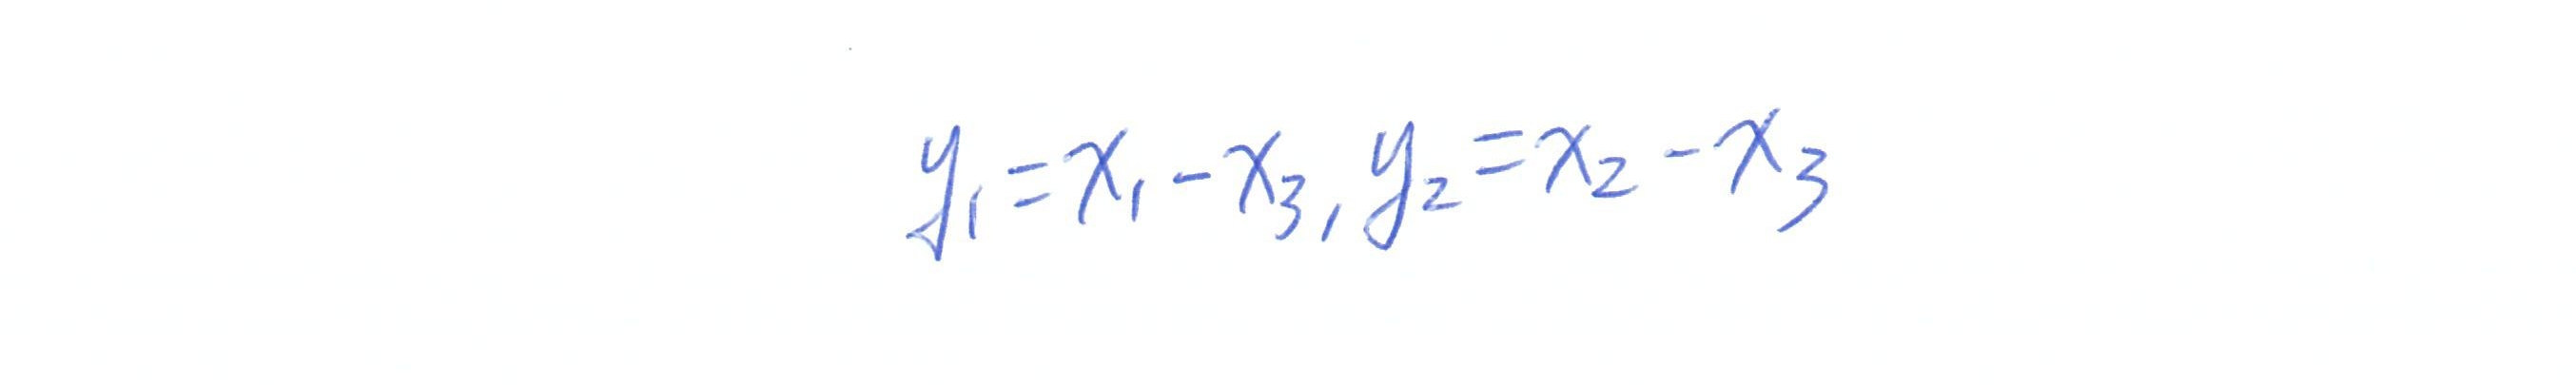 y₁=x₁-x₃, y₂=x₂-x₃